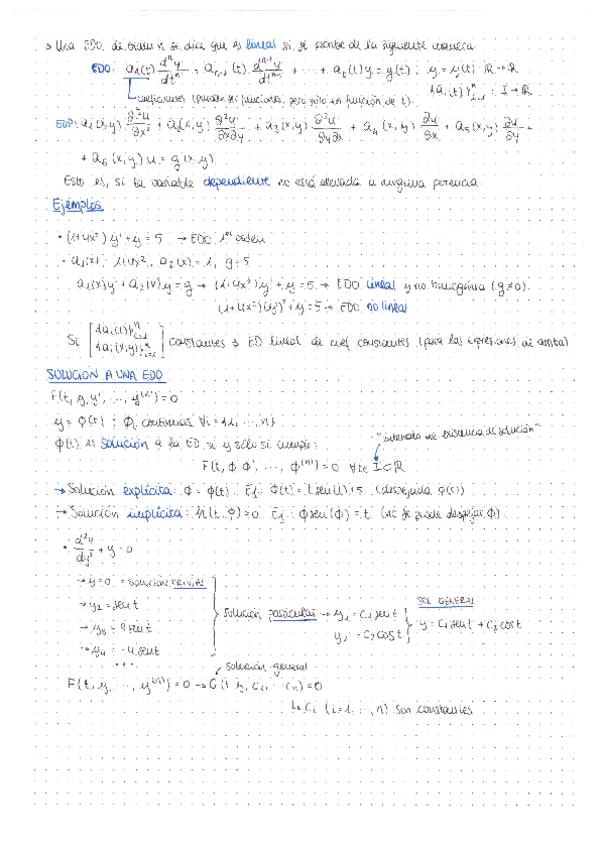 > Una EDO de orden n se dice que es lineal si se escribe de la siguiente manera
EDO: aₙ(t) dⁿy/dtⁿ + aₙ₋₁(t) dⁿ⁻¹y/dtⁿ⁻¹ + ... + a₀(t) y = g(t) ; y = y(t) ; ℝ → ℝ
{aᵢ(t)}ⁿᵢ₌₀ : I → ℝ
coeficientes (pueden ser funciones, pero sólo en función de t).
EDP: a₁(x,y) ∂²u/∂x² + a₂(x,y) ∂²u/∂x∂y + a₃(x,y) ∂²u/∂y∂x + a₄(x,y) ∂u/∂x + a₅(x,y) ∂u/∂y +
+ a₆(x,y) u = g(x,y)
Esto es, si la variable dependiente no está elevada a ninguna potencia
Ejemplos
• (1+4x²) y' + y = 5 → EDO 1er orden
• a₁(x) = 1+4x², a₂(x) = 1, g = 5
a₁(x) y' + a₂(x) y = g → (1+4x²) y' + y = 5 → EDO lineal y no homogénea (g≠0)
(1+4x²)(y')² + y = 5 → EDO no lineal
Si [{aᵢ(t)}ⁿ {aᵢ(x,y)}ⁿ] constantes → ED lineal de coef constantes (para las expresiones de arriba)
SOLUCIÓN A UNA EDO
F(t, y, y', ..., y⁽ⁿ⁾) = 0
y = ϕ(t) ; ϕᵢ continuas ∀i = {1, ..., n}
ϕ(t) es solución a la ED si y sólo si cumple:
"intervalo de existencia de solución"
F(t, ϕ, ϕ', ..., ϕ⁽ⁿ⁾) = 0 ∀t∈ I⊂ℝ
→ Solución explícita: ϕ = ϕ(t). Ej: ϕ(t) = t sen(t) + 5 (despejada ϕ(t))
→ Solución implícita: h(t, ϕ) = 0 Ej: ϕ sen(ϕ) = t (no se puede despejar ϕ)
• d²y/dy² + y = 0
→ y = 0 = solución trivial
→ y₂ = sen t
→ y₃ = 2 sen t
→ y₄ = -4 sen t
....
solución particular → y₁ = C₁ sen t
y₂ = C₂ cos t
SOL GENERAL
y = C₁ sen t + C₂ cos t
solución general
F(t, y, ..., y⁽ⁿ⁾) = 0 → G(t, y, C₁, ..., Cₙ) = 0
↳ Cᵢ (i = 1, ..., n) son constantes